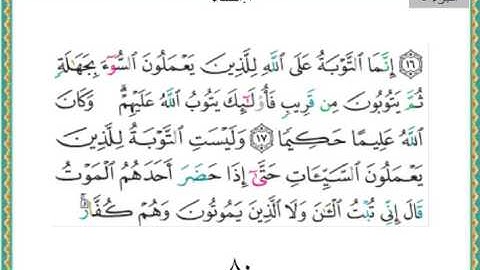 ١٦ إِنَّمَا اَلتَّوْبَةُ عَلَى اَللَّهِ لِلَّذِينَ يَعْمَلُونَ اَلسُّوٓءَ بِجَهَٰلَةٖ
ثُمَّ يَتُوبُونَ مِن قَرِيبٖ فَأُوْلَٰٓئِكَ يَتُوبُ اُللَّهُ عَلَيْهِمْۖ وَكَانَ
اَللَّهُ عَلِيمًا حَكِيمٗا ١٧ وَلَيْسَتِ اِلتَّوْبَةُ لِلَّذِينَ
يَعْمَلُونَ اَلسَّيِّـَٔاتِ حَتَّىٰٓ إِذَا حَضَرَ أَحَدَهُمُ اُلْمَوْتُ
قَالَ إِنِّي تُبْتُ اُلَٰنَ وَلَا اَلذِينَ يَمُوتُونَ وَهُمْ كُفَّارٌۖ
٨٠